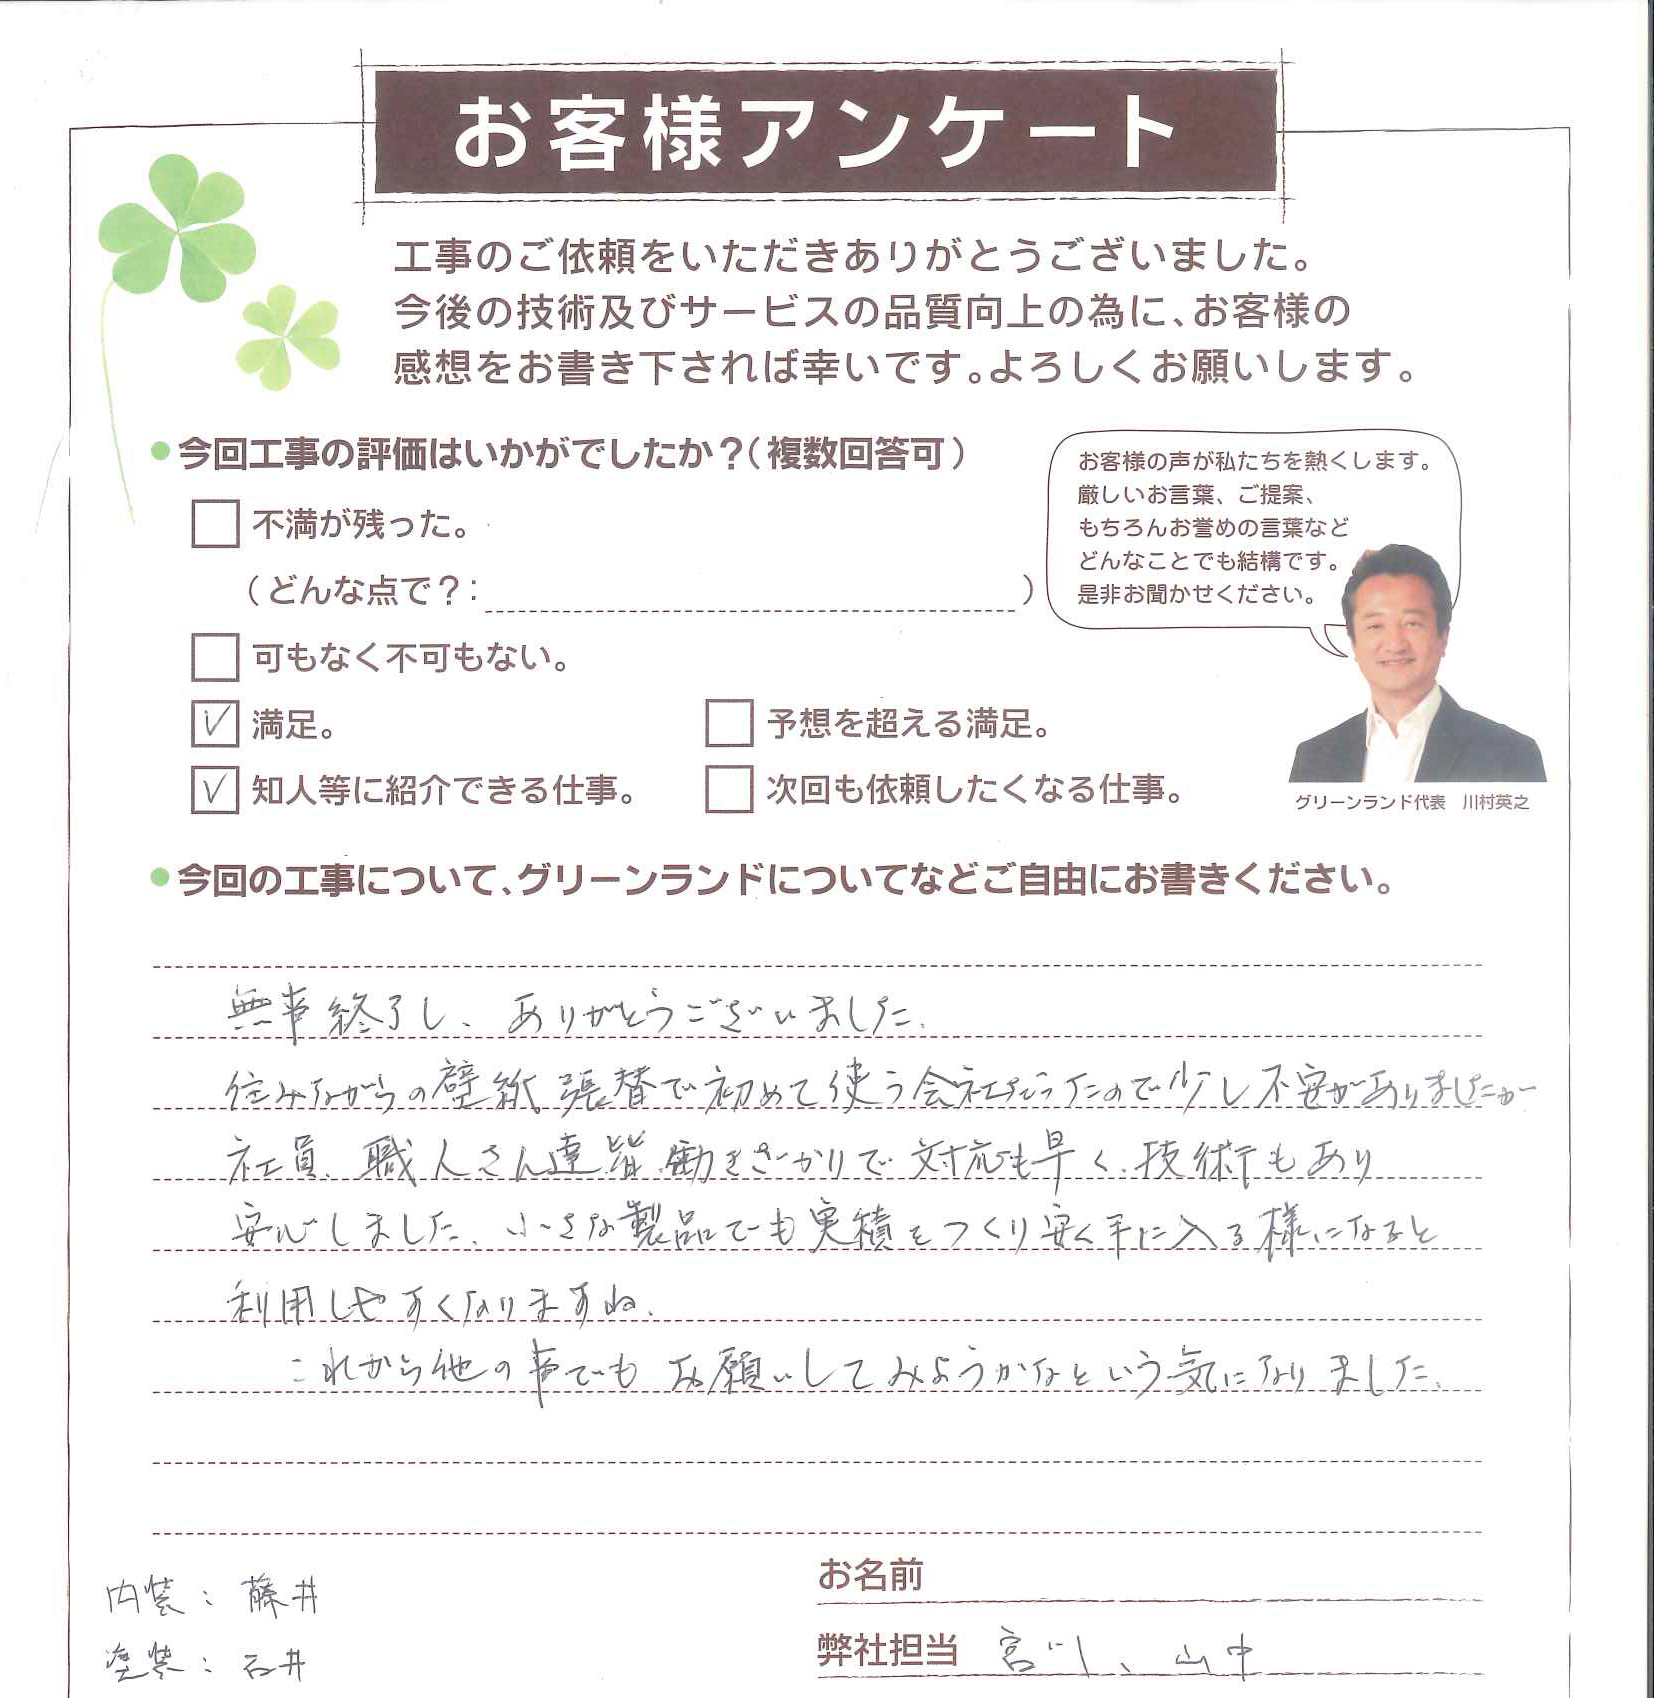 お客様アンケート
工事のご依頼をいただきありがとうございました。
今後の技術及びサービスの品質向上の為に、お客様の
感想をお書き下されば幸いです。よろしくお願いします。
●今回工事の評価はいかがでしたか？（複数回答可）
不満が残った。
（どんな点で？：　　　）
可もなく不可もない。
✓ 満足。
予想を超える満足。
✓ 知人等に紹介できる仕事。
次回も依頼したくなる仕事。
お客様の声が私たちを熱くします。
厳しいお言葉、ご提案、
もちろんお誉めの言葉など
どんなことでも結構です。
是非お聞かせください。
グリーンランド代表　川村英之
●今回の工事について、グリーンランドについてなどご自由にお書きください。
無事終了し、ありがとうございました。
住みながらの壁紙張替で初めて使う会社だったので少し不安がありましたが
社員、職人さん達皆働きざかりで対応も早く、技術もあり
安心しました。小さな製品でも実積をつくり安く手に入る様になると
利用しやすくなりますね。
これから他の事でもお願いしてみようかなという気になりました。
内装：藤井
塗装：石井
お名前
弊社担当　宮川、山中